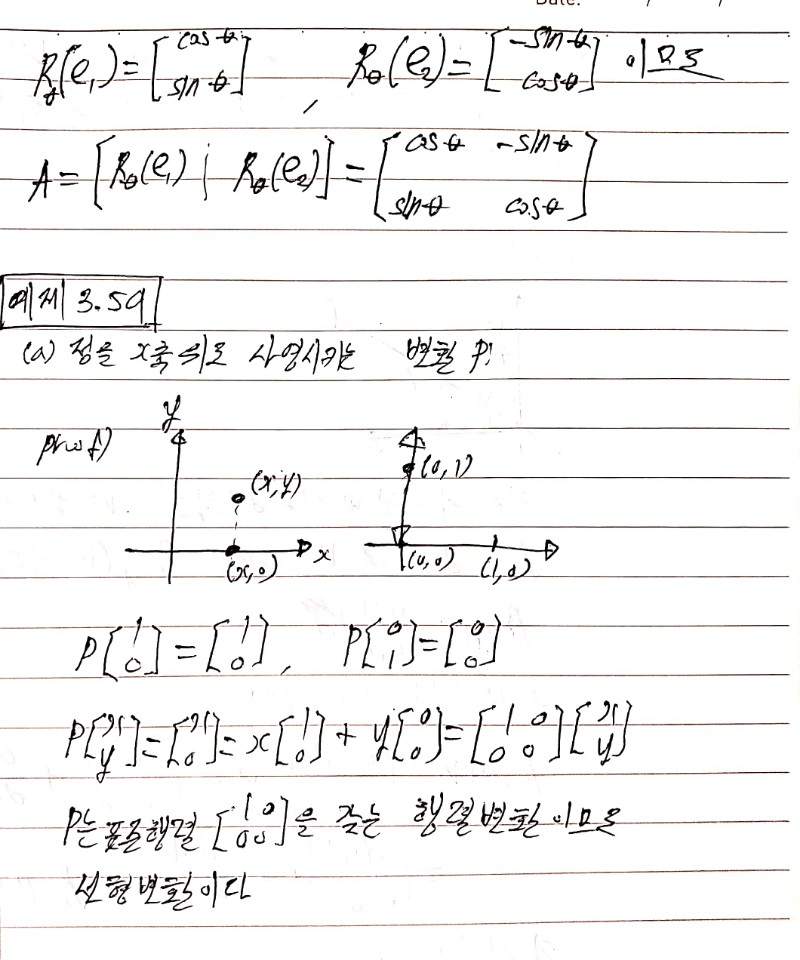 Date:
R_θ(e₁) = [cosθ; sinθ], R_θ(e₂) = [-sinθ; cosθ] 이므로
A = [R_θ(e₁) ¦ R_θ(e₂)] = [cosθ -sinθ; sinθ cosθ]
예제 3.59
(a) 점을 x축 위로 사영시키는 변환 P!
proof)
y
(x,y)
(x,0)
x
(0,1)
(0,0)
(1,0)
P[1; 0] = [1; 0], P[0; 1] = [0; 0]
P[x; y] = [x; 0] = x[1; 0] + y[0; 0] = [1 0; 0 0][x; y]
P는 표준행렬 [1 0; 0 0]을 갖는 행렬변환이므로
선형변환이다